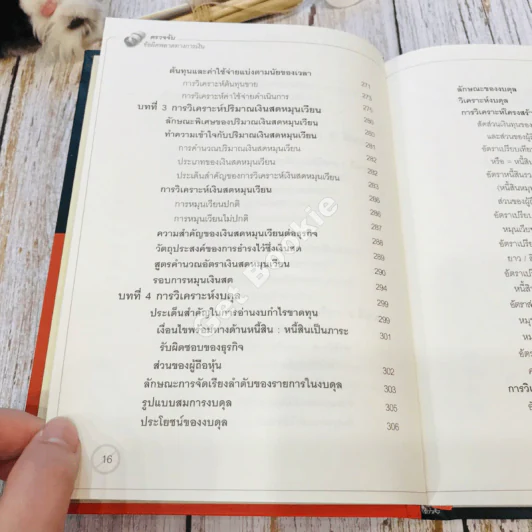 ตรวจจับ
ต้นทุนและค่าใช้จ่ายแบ่งตามนัยของเวลา
การวิเคราะห์ต้นทุนขาย 271
การวิเคราะห์ค่าใช้จ่ายดำเนินการ 273
บทที่ 3 การวิเคราะห์ปริมาณเงินสดหมุนเวียน 275
ลักษณะพิเศษของปริมาณเงินสดหมุนเวียน 280
ทำความเข้าใจกับปริมาณเงินสดหมุนเวียน 280
การคำนวณปริมาณเงินสดหมุนเวียน 281
ประเภทของเงินสดหมุนเวียน 282
ประเด็นสำคัญของการวิเคราะห์เงินสดหมุนเวียน 282
การวิเคราะห์เงินสดหมุนเวียน 283
การหมุนเวียนปกติ 286
การหมุนเวียนไม่ปกติ 286
ความสำคัญของเงินสดหมุนเวียนต่อธุรกิจ 287
วัตถุประสงค์ของการธำรงไว้ซึ่งเงินสด 288
สูตรคำนวณอัตราเงินสดหมุนเวียน 289
รอบการหมุนเงินสด 290
บทที่ 4 การวิเคราะห์งบดุล 294
ประเด็นสำคัญในการอ่านงบกำไรขาดทุน 299
เงื่อนไขพร้อมทางด้านหนี้สิน : หนี้สินเป็นภาระ 299
รับผิดชอบของธุรกิจ 301
ส่วนของผู้ถือหุ้น 302
ลักษณะการจัดเรียงลำดับของรายการในงบดุล 303
รูปแบบสมการงบดุล 305
ประโยชน์ของงบดุล 306
16
ลักษณะของงบดุล
วิเคราะห์งบดุล
การวิเคราะห์โครงสร้า
สัดส่วนเงินทุนของ
และส่วนของผู้
อัตราเปรียบเทีย
หรือ =
อัตราหนี้สินรว
(หนี้สินหมุ
ส่วนของผู้ถื
อัตราเปรีย
หมุนเวีย
อัตราเปรีย
ยาว /
อัตราเปรีย
หนี้สิ
อัตราส
หมุ
อัตรา
การวิเ
Get Bookie